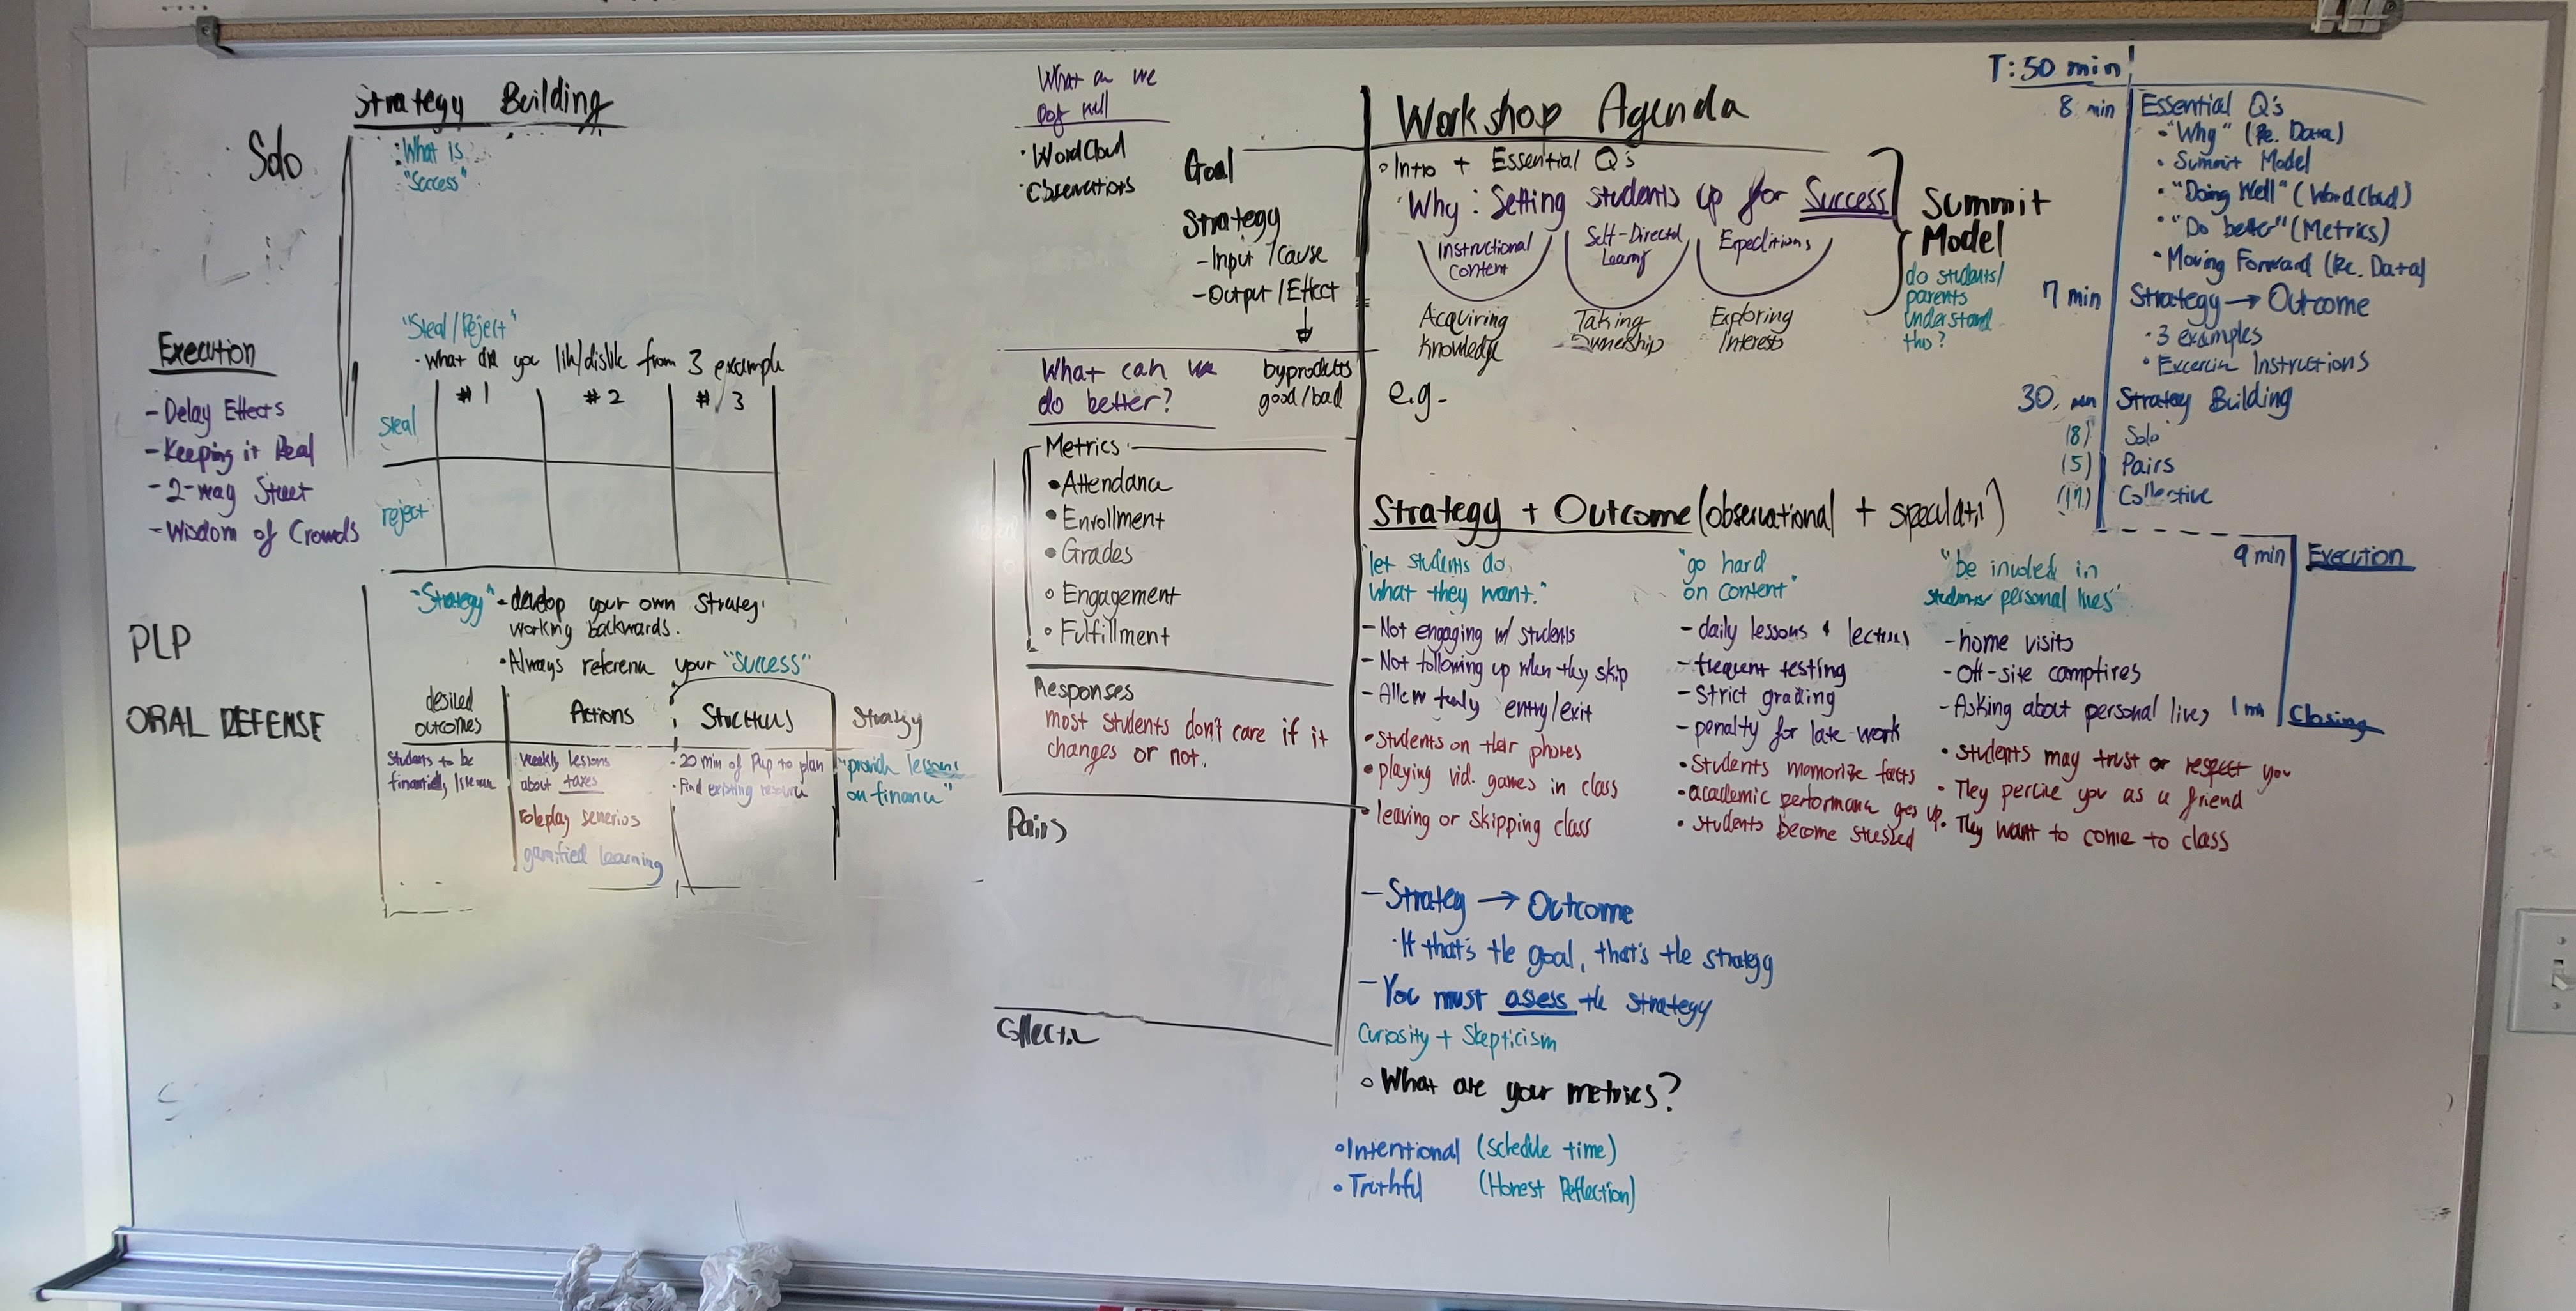 Strategy Building
Solo
· What is
"Success"
"Steal/Reject"
· What do you lik/dislik from 3 example
#1 #2 # 3
Steal
reject
Execution
- Delay Effects
- Keeping it Real
- 2-way Street
- Wisdom of Crowds
PLP
ORAL DEFENSE
"Strategy" - develop your own Strategy
working backwards.
• Always referenc your "Success"
desired
outcomes
Actions
Structures
Strategy
Students to be
financially literate
weekly lessons
about taxes
roleplay senerios
gamified learning
- 20 min of Prep to plan
· Find existing resource
"provide lessons
on finance"
What can we
do better?
· WordCloud
· Observations
Goal
Strategy
- Input / Cause
- Output / Effect
byproducts
good/bad
Metrics
• Attendance
• Enrollment
• Grades
◦ Engagement
◦ Fulfillment
Responses
most students don't care if it
changes or not.
Pairs
Collective
Workshop Agenda
◦ Intro + Essential Q's
Why: Setting Students up for Success
Instructional
Content
Self-Directed
Learning
Expeditions
Acquiring
Knowledge
Taking
Ownership
Exploring
Interests
Summit
Model
do students/
parents
understand
this?
e.g.
Strategy + Outcome (observational + speculati
"let students do
what they want."
- Not engaging w/ students
- Not following up when they skip
- Allow freely entry/exit
• Students on their phones
• playing vid. games in class
• leaving or skipping class
"go hard
on content"
- daily lessons & lectures
- frequent testing
- Strict grading
- penalty for late work
• Students memorize facts
• academic performance goes up
• Students become stressed
"be involved in
students personal lives"
- home visits
- Off-site campfires
- Asking about personal lives
• Students may trust or respect you
• They percive you as a friend
• They want to come to class
- Strategy → Outcome
· If that's the goal, that's the strategy
- You must asess the strategy
Curiosity + Skepticism
◦ What are your metrics?
◦ Intentional (Schedule time)
◦ Truthful (Honest Reflection)
T: 50 min
8 min Essential Q's
• "Why" (Re. Data)
• Summit Model
• "Doing Well" (WordCloud)
• "Do better" (Metrics)
• Moving Forward (Re. Data)
7 min Strategy → Outcome
· 3 examples
• Excercise Instructions
30 min Strategy Building
(8) Solo
(5) Pairs
(17) Collective
9 min Execution
1 min Closing